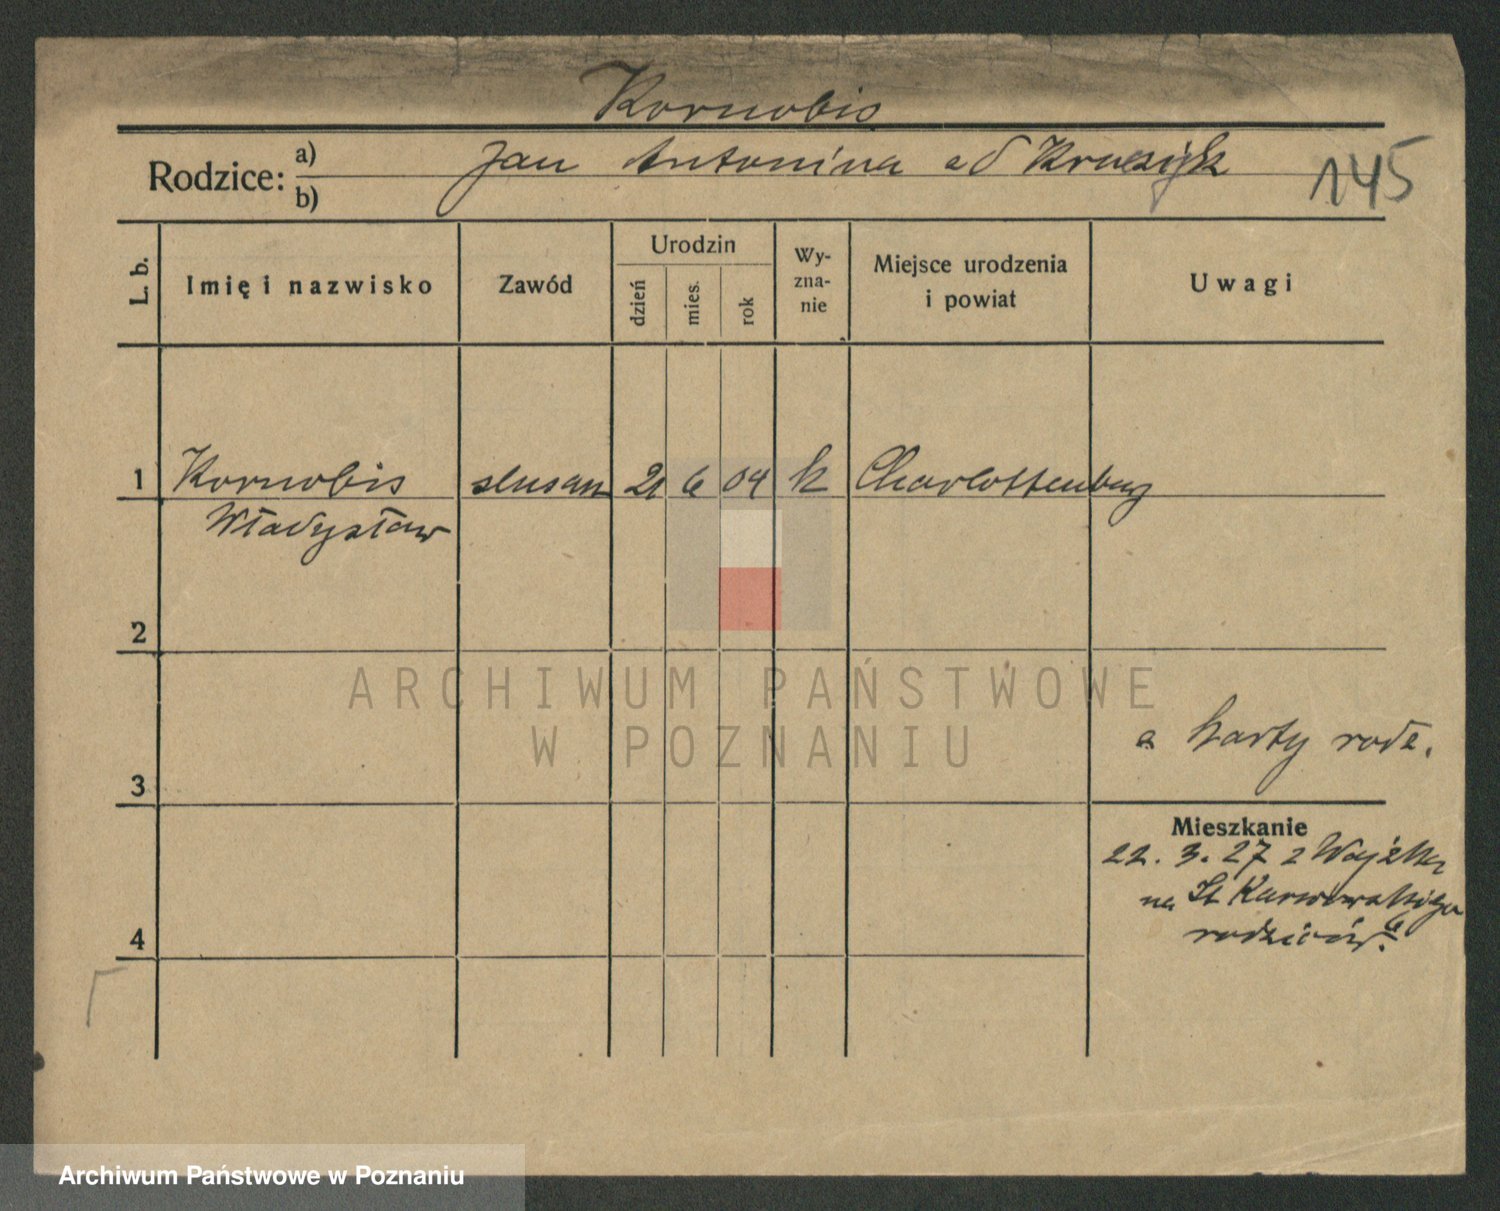 Kornobis
Rodzice: a) b) Jan Antonina
145
L. b.
Imię i nazwisko
Zawód
Urodzin
dzień
mies.
rok
Wy-
zna-
nie
Miejsce urodzenia
i powiat
Uwagi
1 Kornobis 21 6 04 k Charlottenburg
Władysław
2
ARCHIWUM PAŃSTWOWE
W POZNANIU
karty rodz.
3
Mieszkanie
22. 3. 27 z
na St Karwowskiego
4 rodziców.
Archiwum Państwowe w Poznaniu